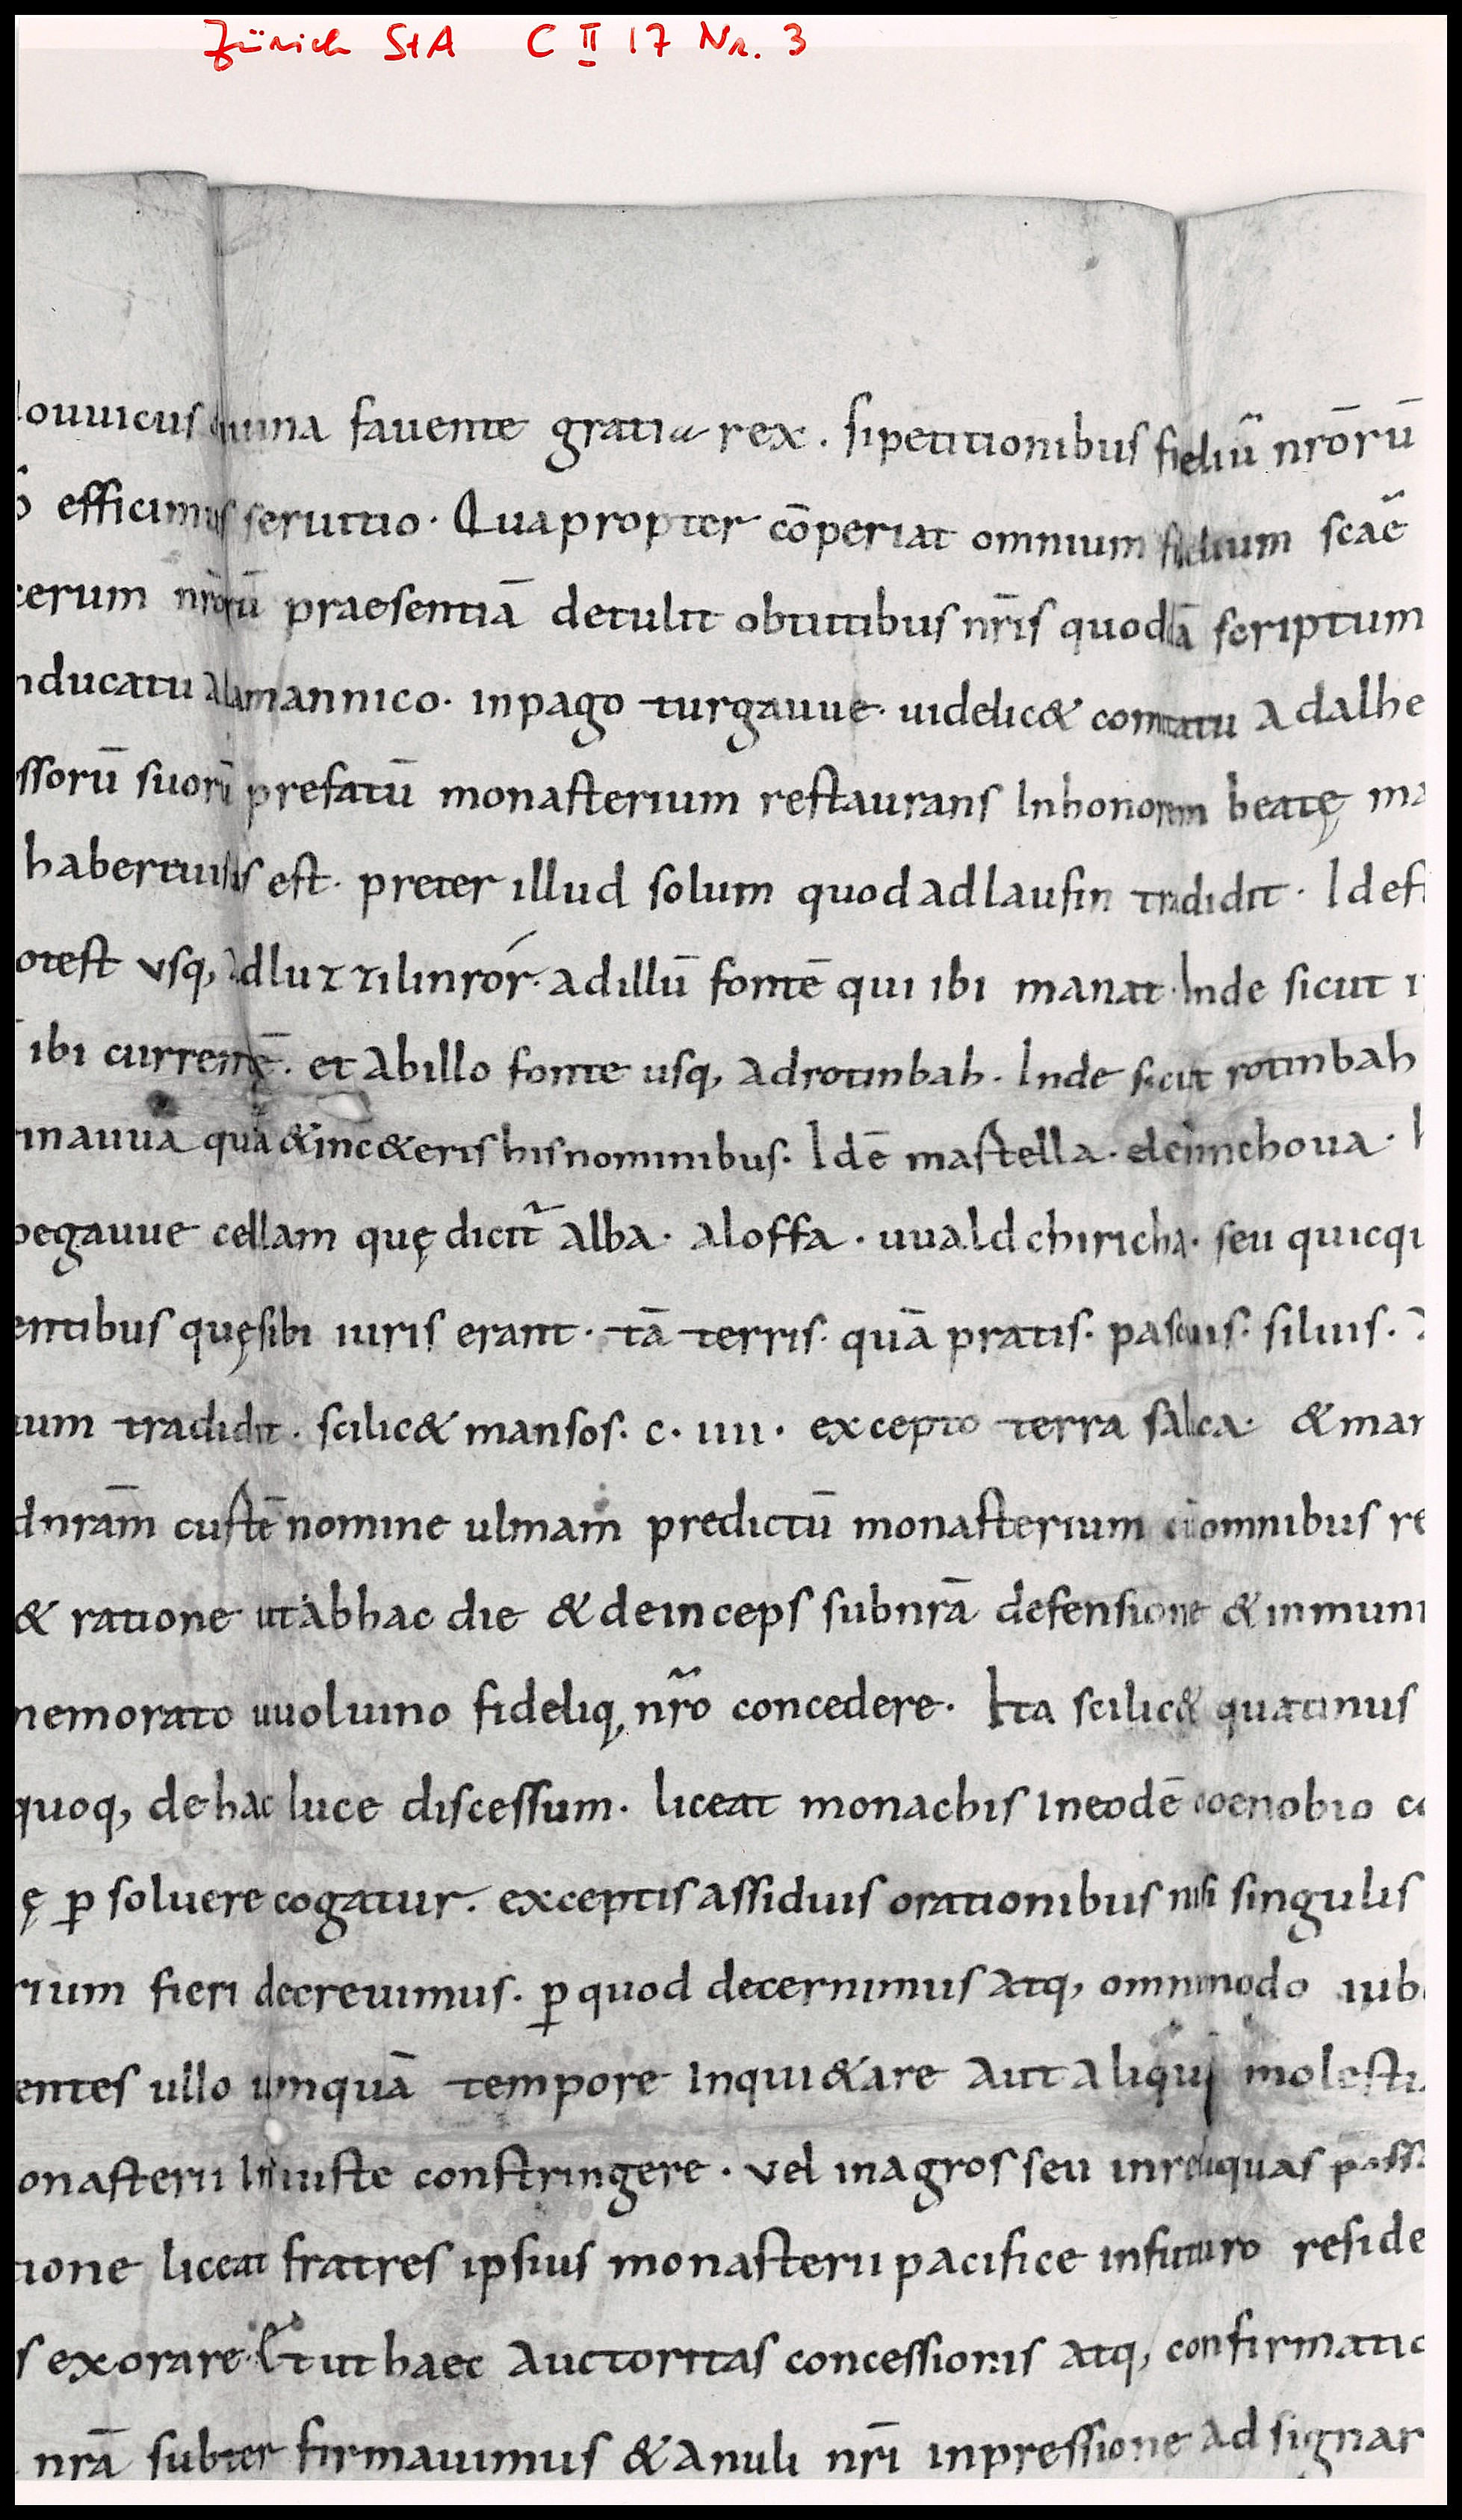 Zürich StA C II 17 Nr. 3
louuicus diuina fauente gratia rex. si petitionibus fideliũ nr̄orū
efficimus seruitio. Quapropter cōperiat omnium fidelium scaē
cerum nr̄orū praesentiā detulit obtutibus nr̄is quodā scriptum
nducatu alamannico. in pago turgauue. uidelic& comitatu adalhe
ssorū suorū prefatū monasterium restaurans In honorem beatę ma
habere uisus est. preter illud solum quod ad lausin tradidit. Idest
otest usq, ad luzzilinror. ad illū fontē qui ibi manat. Inde sicut
ibi currentē. et ab illo fonte usq, ad rotinbah. Inde sicut rotinbah
rinauuā quā & in c&eris his nominibus. Idē mastella. eleinchoua.
pegauue cellam quę dicit̃ alba. aloffa. uualdchiricha. seu quicqu
entibus quę sibi iuris erant. tā terris. quā pratis. pascuis. siluis.
ium tradidit. scilic& mansos. c. iiii. excepto terra salica. & man
d nr̄am custē nomine ulmam predictū monasterium cū omnibus re
& ratione ut ab hac die & deinceps sub nr̄a defensione & inmuni
memorato uuoluino fideliq, nr̃o concedere. Ita scilic& quatinus
quoq, de hac luce discessum. liceat monachis in eodē coenobio co
ę p̱soluere cogatur. exceptis assiduis orationibus nisi singulis
rium fieri decreuimus. p̱ quod decernimus atq, omnimodo iub
entes ullo umquā tempore inqui&are aut aliquā molesti
onasterii Iniuste constringere. vel in agros seu in reliquas poss
tione liceat fratres ipsius monasterii pacifice in futuro reside
s exorare. Et ut haec auctoritas concessionis atq, confirmatio
nr̄a subter firmauimus & anuli nr̄i inpressione adsignar